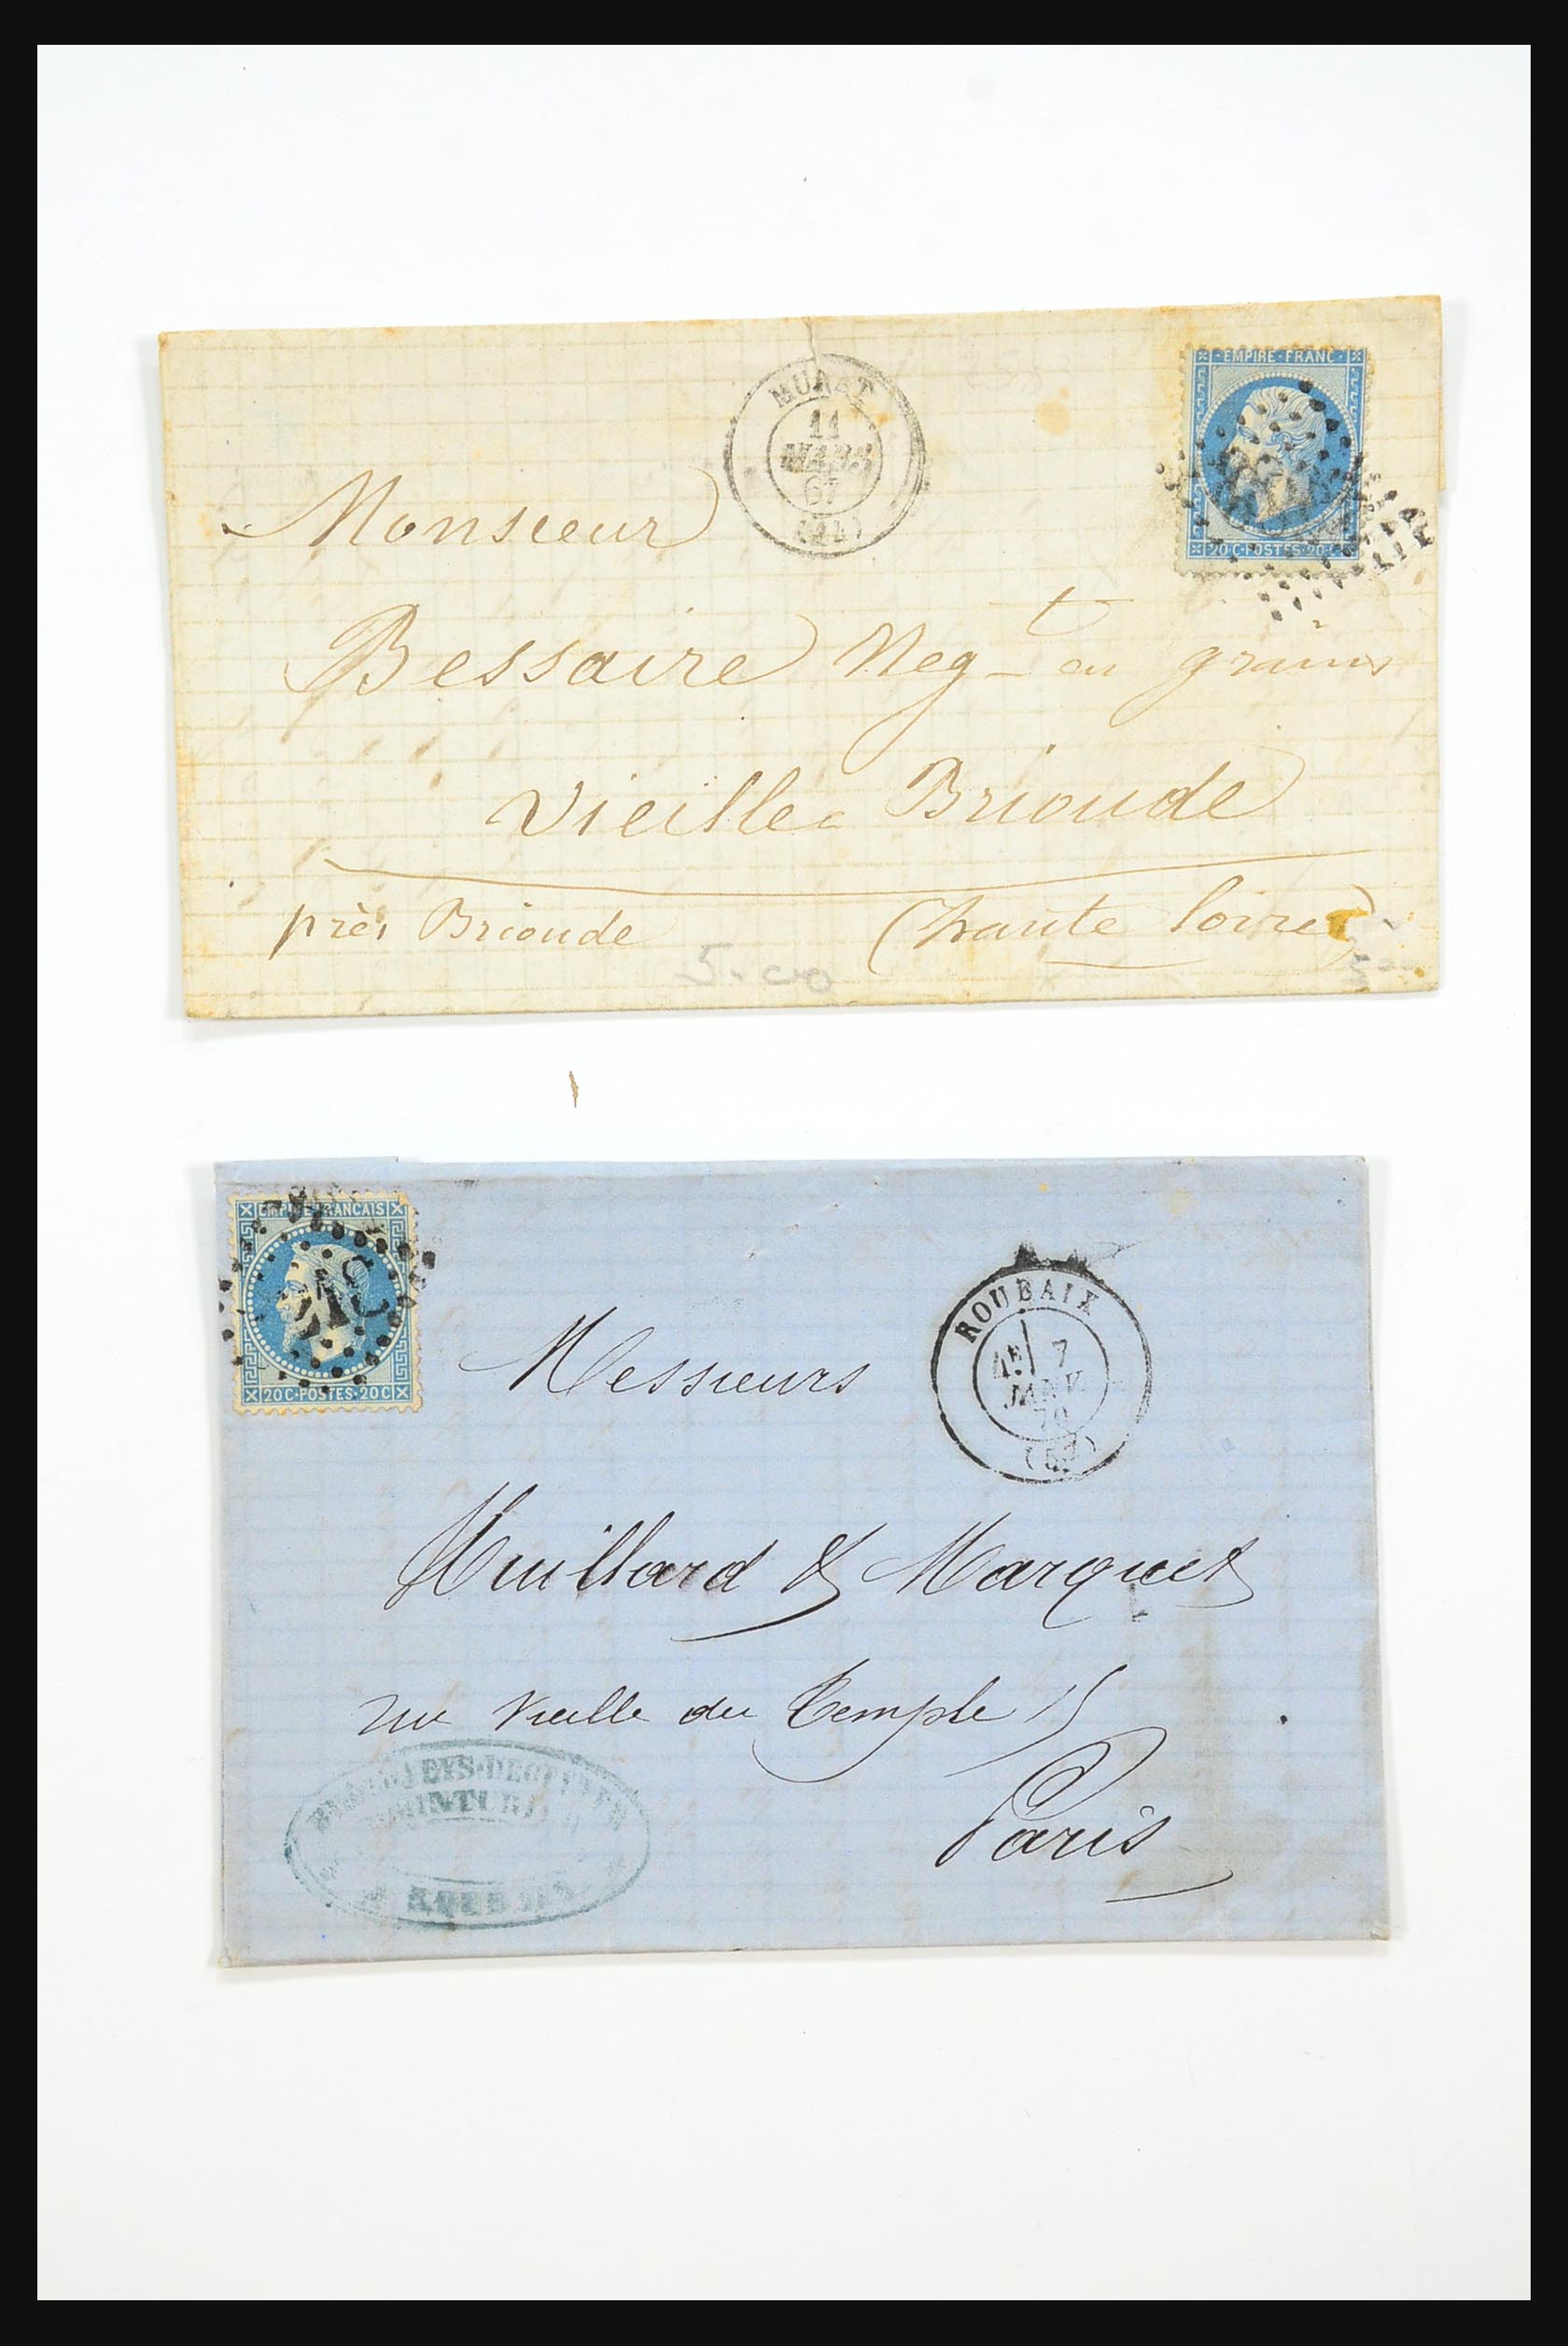 MURAT
11
MARS
67
EMPIRE·FRANC·
20 C·POSTES·20 C
Monsieur
Bessaire Neg-t en grains
Vieille Brioude
près Brioude (haute loire)
5.00
EMPIRE FRANCAIS
20 C·POSTES·20 C
ROUBAIX
7
JANV.
70
Messieurs
& Marquet
rue Vieille du Temple 15
Paris
ROUBAIX